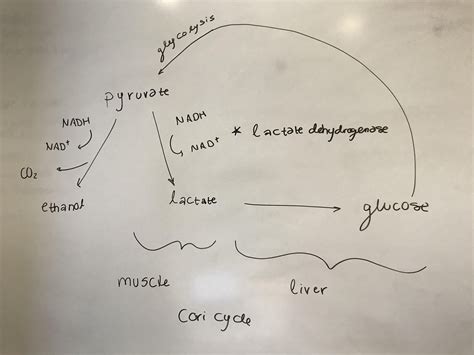 glycolysis
pyruvate
NADH
NAD⁺
CO₂
ethanol
NADH
NAD⁺
* lactate dehydrogenase
lactate
glucose
muscle
liver
Cori cycle